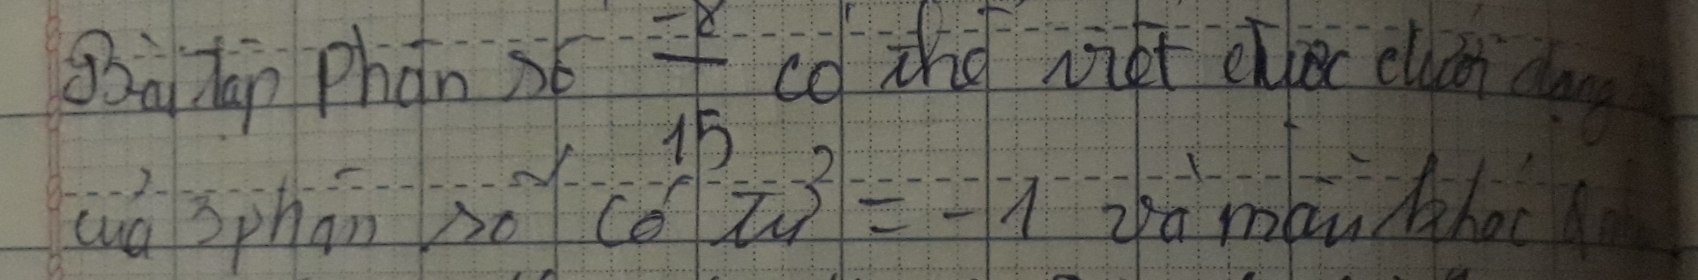 Bài tập Phân số -8/15 có thể viết được dưới dạng
của 3 phân số có tử = -1 và mẫu khác